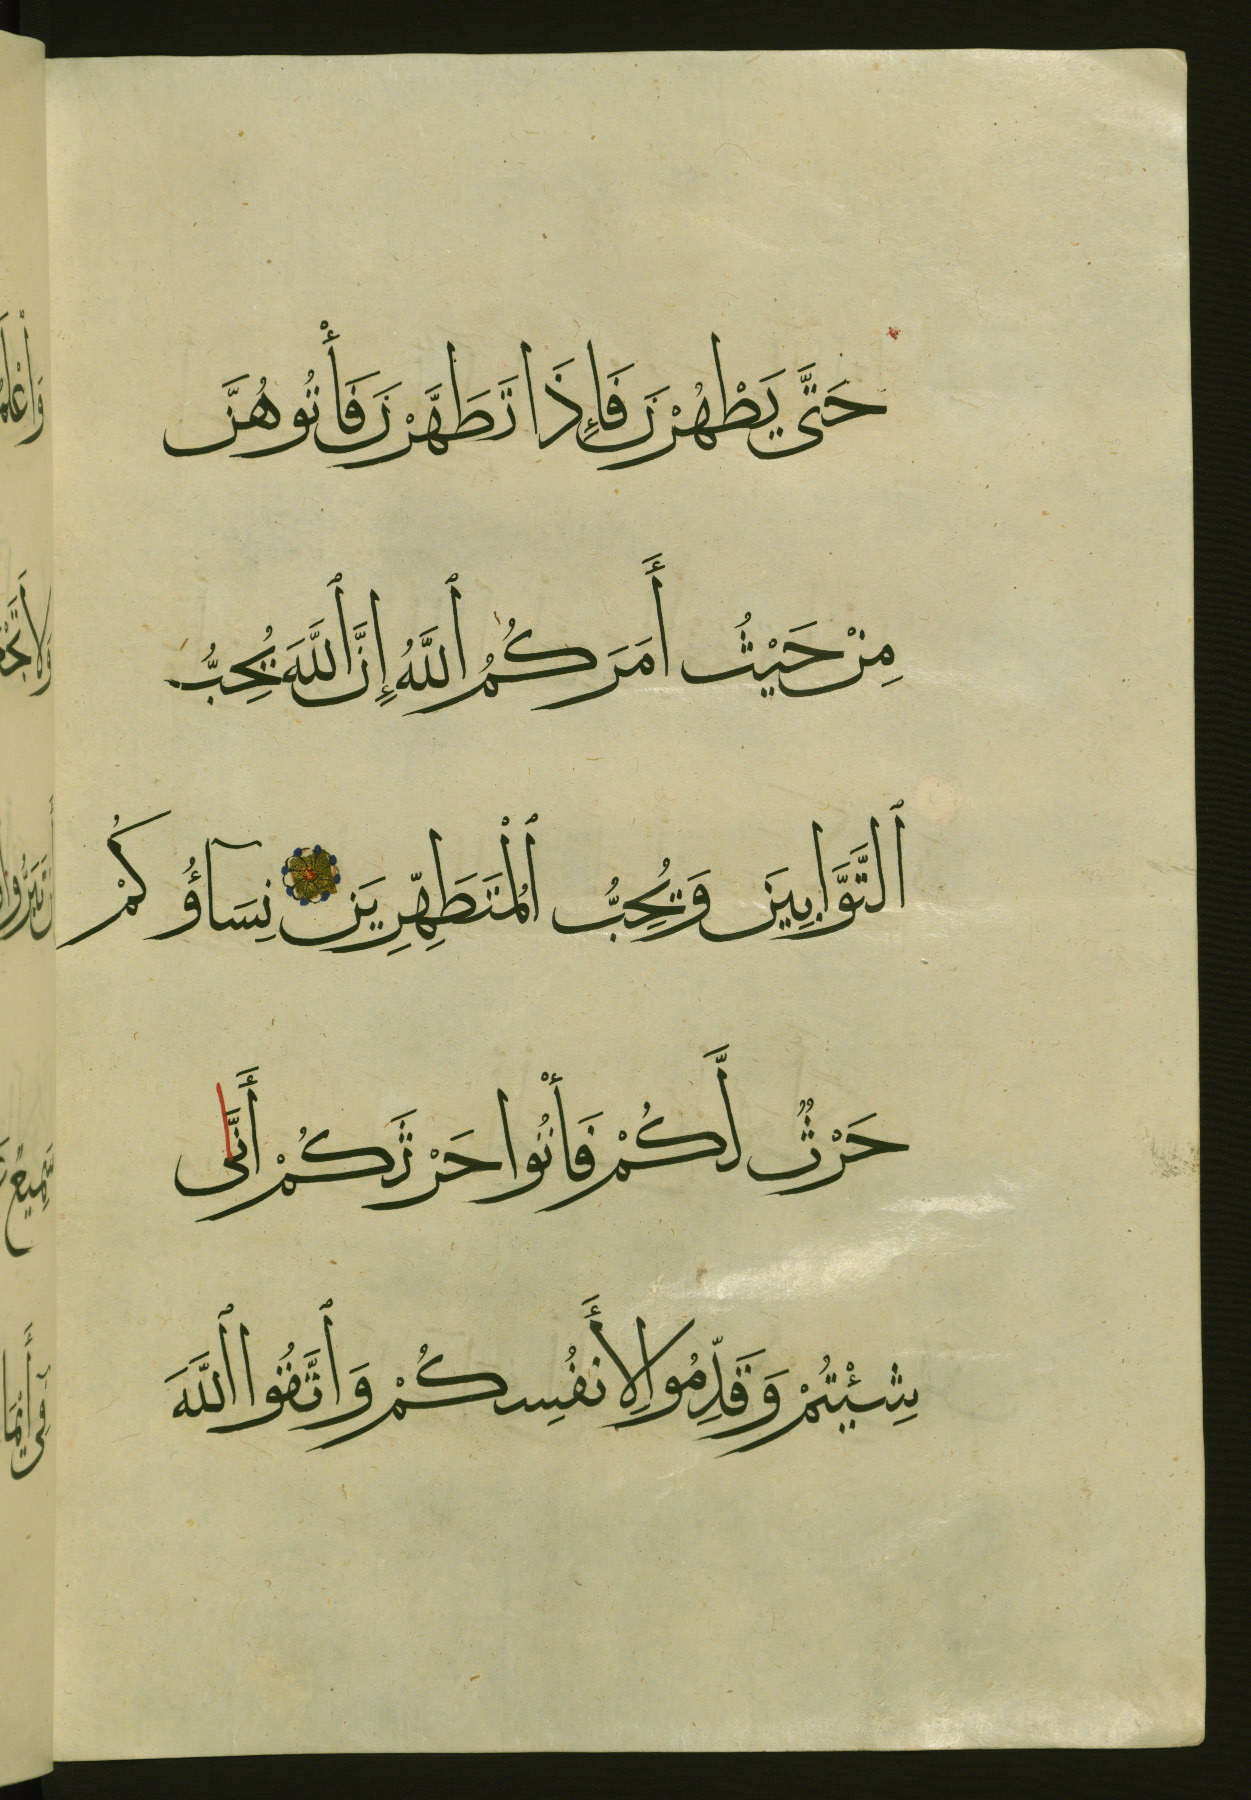 حَتَّى يَطْهُرْنَ فَإِذَا تَطَهَّرْنَ فَأْتُوهُنَّ
مِنْ حَيْثُ أَمَرَكُمُ ٱللَّهُ إِنَّ ٱللَّهَ يُحِبُّ
ٱلتَّوَّابِينَ وَيُحِبُّ ٱلْمُتَطَهِّرِينَ نِسَآؤُكُمْ
حَرْثٌ لَّكُمْ فَأْتُوا حَرْثَكُمْ أَنَّى
شِئْتُمْ وَقَدِّمُوا لِأَنفُسِكُمْ وَٱتَّقُوا ٱللَّهَ